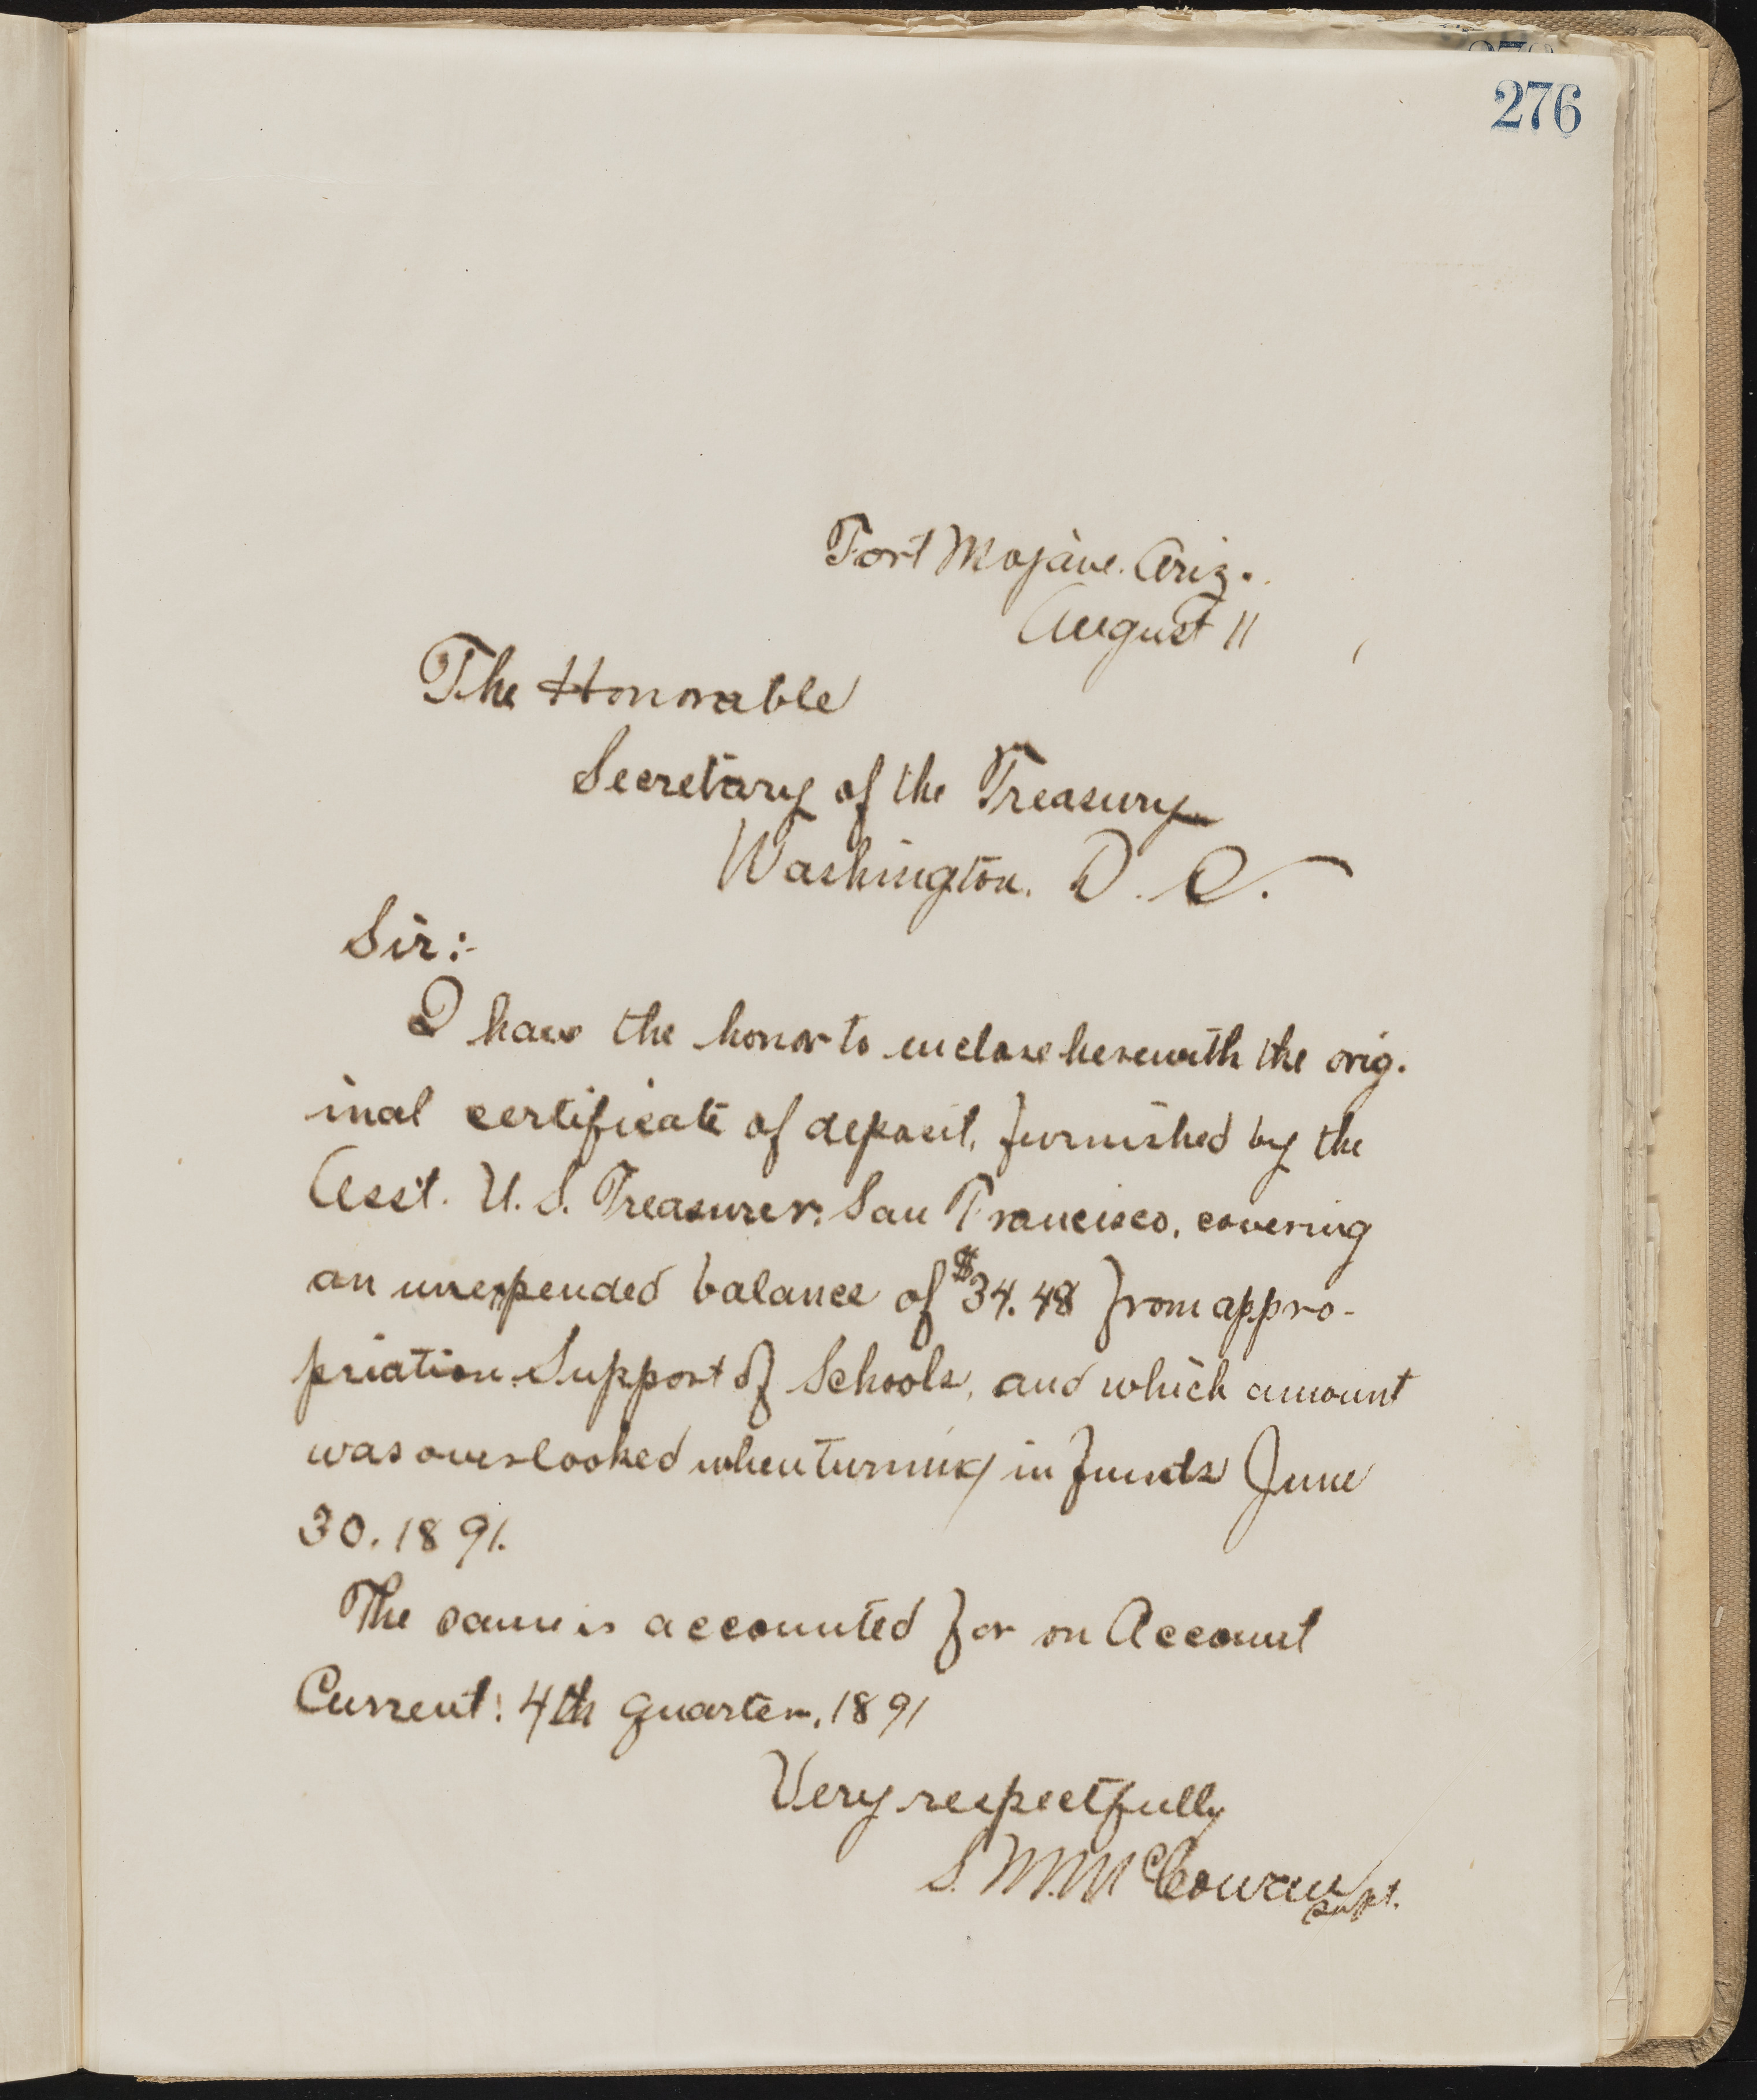 276
Fort Mojave. Ariz.
August 11
The Honorable
Secretary of the Treasury
Washington. D. C.
Sir:-
I have the honor to enclose herewith the orig-
inal certificate of deposit, furnished by the
Asst. U. S. Treasurer, San Francisco, covering
an unexpended balance of $34.48 from appro-
priation Support of Schools, and which amount
was overlooked when turning in funds June
30. 1891.
The same is accounted for on Account
Current: 4th quarter, 1891
Very respectfully
S. M. McCowan
Supt.